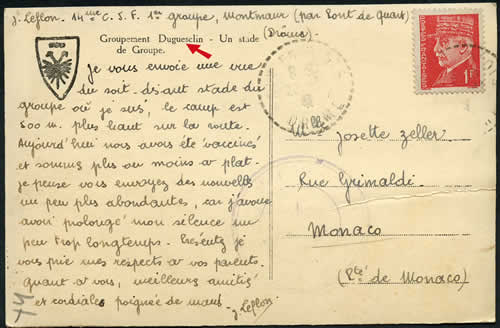 J. Leflon. 14me C. S. F. 1er groupe, Montmaur (par Pont de Quart)
(Drome) -
Groupement Duguesclin - Un stade
de Groupe.
Je vous envoie une vue
du soit-disant stade du
groupe où je suis, le camp est
500 m. plus haut sur la route.
Aujourd'hui nous avons été "vaccinés"
et sommes plus ou moins à plat.
Je pense vous envoyer des nouvelles
un peu plus abondantes, car j'avoue
avoir prolongé mon silence un
peu trop longtemps. Présentez je
vous prie mes respects à vos parents.
Quant à vous, meilleurs amitiés
et cordiales poignée de main.
J. Leflon
Mlle
Josette Zeller
Rue Grimaldi.
Monaco
(Pté de Monaco)
1F
14